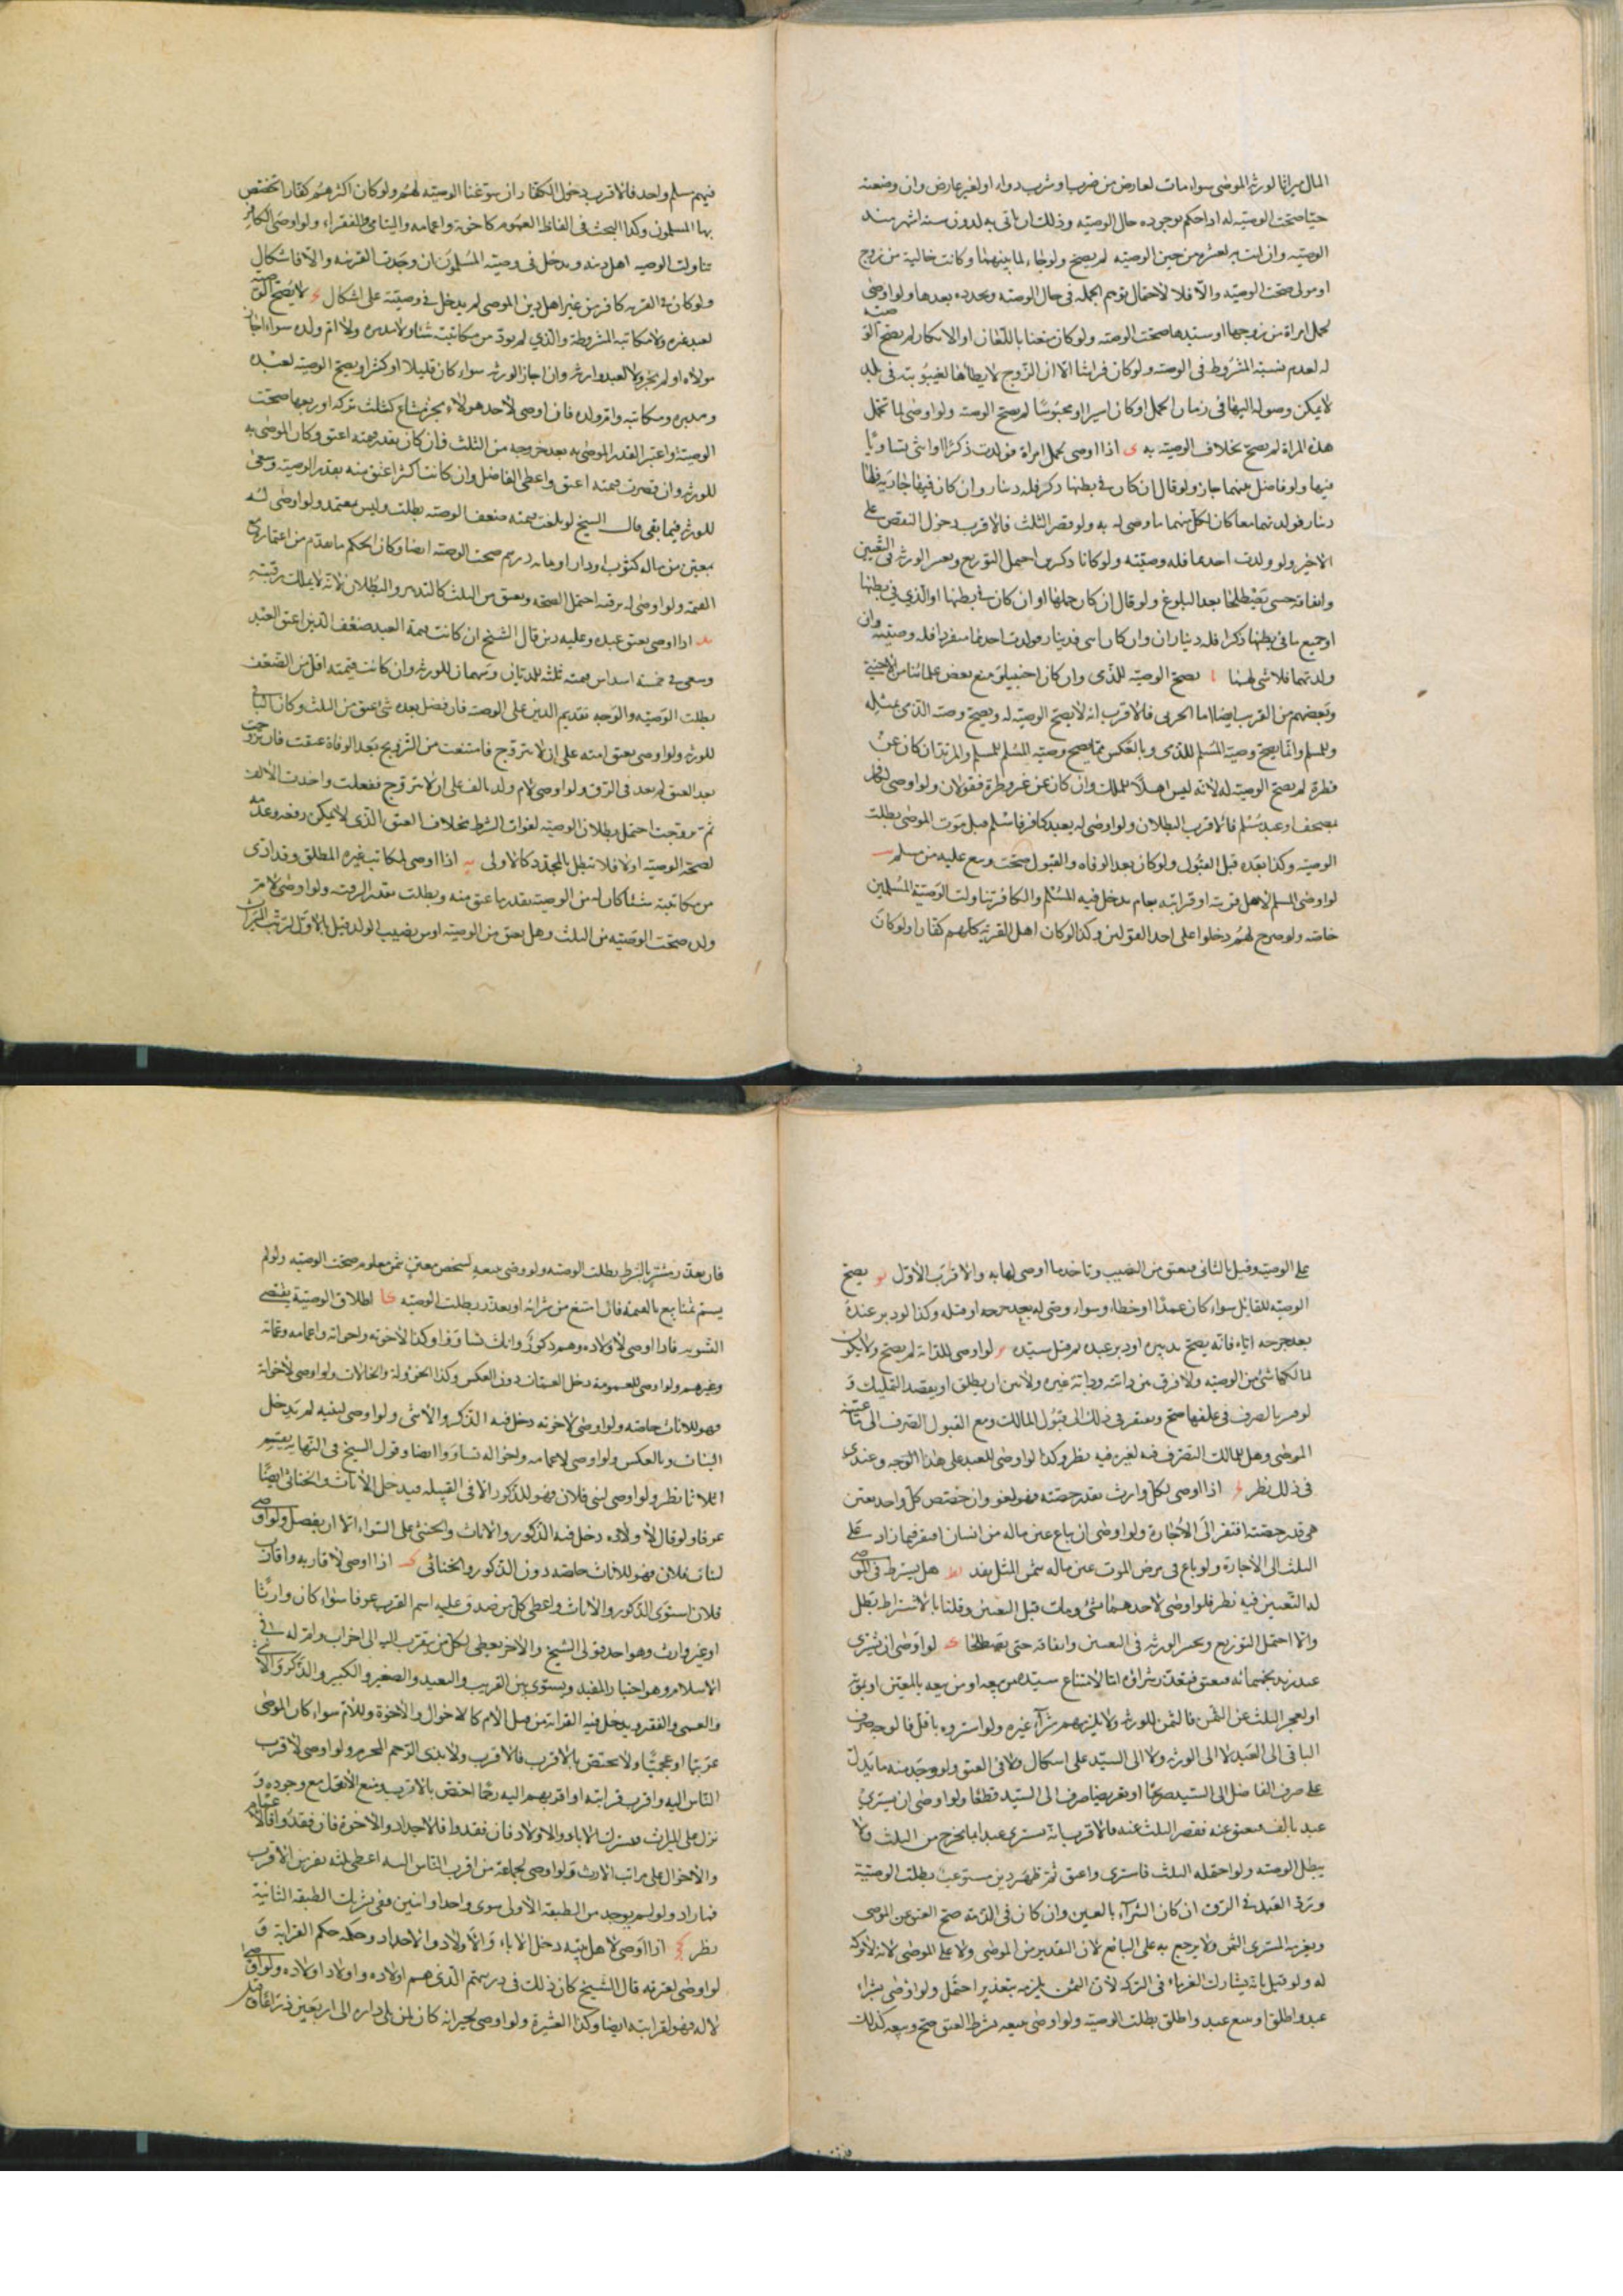 المال ميراثا لورثه الموصى سواء مات لعارض من ضرب او شرب دواء او لغير عارض وان وضعته
حيا صحت الوصيه له اذا حكم بوجوده حال الوصيه وذلك ان ياتى به لدون سته اشهر منذ
الوصيه وان اتت به لعشره من حين الوصيه لم يصح ولو جاء لما بينهما وكانت خالية من زوج
او مولى صحت الوصيه والا فلا لاحتمال توهم الحمل فى حال الوصيه وتجدده بعدها ولو اوصى
لحمل امراة من زوجها او سيدها صحت الوصيه ولو كان منفيا باللعان او الانكار لم يصح الوصيه
له لعدم نسبته المشروط فى الوصيه ولو كان فراشا الا ان الزوج لا يطاها لغيبوبته فى بلد
لا يمكن وصوله اليها فى زمان الحمل او كان اسيرا او محبوسا لم يصح الوصيه ولو اوصى لما تحمل
هذه المراة لم يصح بخلاف الوصيه به ى اذا اوصى لحمل امراة فولدت ذكرا او انثى تساويا
فيها ولو فاضل بينهما جاز ولو قال ان كان فى بطنها ذكر فله دينار وان كان فيها جارية فلها
دينار فولدتهما معا كان لكل منهما ما وصى له به ولو قصر الثلث فالاقرب دخول النقص على
الاخير ولو ولدت احدهما فله وصيته ولو كانا ذكرين احتمل التوزيع وتخير الورثه فى التعيين
وايقافه حتى يصطلحا بعد البلوغ ولو قال ان كان حملها او ان كان فى بطنها او الذي في بطنها
او جميع ما فى بطنها ذكرا فله ديناران وان كان انثى فدينار فولدت احدهما منفردا فله وصيته وان
ولدتهما فلا شى لهما يا يصح الوصيه للذمى وان كان اجنبيا ومنع بعض علمائنا من الاجنبي
وبعضهم من القريب ايضا اما الحربى فالاقرب انه لا يصح الوصيه له ويصح وصيه الذمى لمثله
وللمسلم وانما يصح وصية المسلم للذمى وبالعكس بما يصح وصيه المسلم للمسلم والمرتد ان كان عن
فطرة لم يصح الوصيه له لانه ليس اهلا للملك وان كان عن غير فطرة فقولان ولو اوصى لكافر
بمصحف او عبد مسلم فالاقرب البطلان ولو اوصى له بعبد كافر فاسلم قبل موت الموصى بطلت
الوصيه وكذا بعده قبل القبول ولو كان بعد الوفاه والقبول صحت وبيع عليه من مسلم يب
لو اوصى المسلم لاهل قريته او قرابته بعام يدخل فيه المسلم والكافر تناولت الوصية المسلمين
خاصه ولو صرح لهم دخلوا على احد القولين وكذا لو كان اهل القريه كلهم كفارا ولو كان
فيهم مسلم واحد فالاقرب دخول الكفار ان سوغنا الوصيه لهم ولو كان اكثرهم كفارا اختص
بها المسلمون وكذا البحث فى الفاظ العموم كاخوته واعمامه واليتامى والفقراء ولو اوصى الكافر
تناولت الوصيه اهل دينه ويدخل فى وصيته المسلمون ان وجدت القرينه والا فاشكال
ولو كان فى القريه كافر من غير اهل دين الموصى لم يدخل في وصيته على اشكال يج لا يصح الوصيه
لعبد غيره ولا مكاتبه المشروطة والذي لم يود من مكاتبته شئا ولا مدبره ولا ام ولده سواء اجاز
مولاه او لم يجز ولا لعبد وارثه وان اجاز الورثه سواء كان قليلا او كثيرا ويصح الوصيه لعبده
ومدبره ومكاتبه وام ولده فان اوصى لاحد هولاء بجزء مشاع كثلث تركه او ربعها صحت
الوصية واعتبر القدر الموصى به بعد خروجه من الثلث فان كان بقدر قيمته اعتق وكان الموصى به
للورثه وان قصرت قيمته اعتق واعطى الفاضل وان كانت اكثر اعتق منه بقدر الوصيه وسعى
للورثه فيما بقى قال الشيخ لو بلغت قيمته ضعف الوصيه بطلت وليس بمعتمد ولو اوصى له
بمعين من ماله كثوب او دار او مايه درهم صحت الوصيه ايضا وكان الحكم ما تقدم من اعتباره
القيمه ولو اوصى له برقبه احتمل الصحه ويعتق من الثلث كالتدبير والبطلان لانه لا يملك رقبته
يد اذا اوصى بعتق عبده وعليه دين قال الشيخ ان كانت قيمة العبد ضعف الدين اعتق العبد
وسعى فى خمسه اسداس قيمته ثلثه للديان وسهمان للورثه وان كانت قيمته اقل من الضعف
بطلت الوصيه والوجه تقديم الدين على الوصيه فان فضل بعده شى عتق من الثلث وكان الباقى
للورثه ولو اوصى بعتق امته على ان لا تتزوج فامتنعت من التزويج بعد الوفاة عتقت فان تزوجت
بعد العتق لم تعد فى الرق ولو اوصى لام ولد بالف على ان لا تتزوج ففعلت واخذت الالف
ثم تزوجت احتمل بطلان الوصيه لفوات الشرط بخلاف العتق الذى لا يمكن رفعه وعدمه
لصحة الوصيه اولا فلا تبطل بالمجدد كالاولى يه اذا اوصى لمكاتب غيره المطلق وقد ادى
من مكاتبته شئا كان له من الوصيه بقدر ما عتق منه وبطلت بقدر الرقيه ولو اوصى لام
ولده صحت الوصيه من الثلث وهل يعتق من الوصيه او من نصيب الولد قيل بالاول لترتب الميراث
على الوصيه وقيل بالثانى فيعتق من النصيب وتاخذ ما اوصى لها به والاقرب الاول يو يصح
الوصيه للقاتل سواء كان عمدا او خطاء وسواء وصى له بعد جرحه او قبله وكذا لو دبر عبده
بعد جرحه اياه فانه يصح تدبيره او دبر عبده ثم قتل سيده يز لو اوصى للدابة لم يصح ولا يكون
لمالكها شئ من الوصيه ولا فرق بين دابته ودابة غيره ولا بين ان يطلق او يقصد التمليك و
لو امر بالصرف فى علفها صح ويفتقر فى ذلك الى قبول المالك ومع القبول الصرف الى
الموصى وهل للمالك التصرف فيه لغيره فيه نظر وكذا لو اوصى للعبد على هذا الوجه وعندى
فى ذلك نظر يح اذا اوصى لكل وارث بقدر حصته فهو لغو وان خصص كل واحد بعين
هى قدر حصته افتقر الى الاجازة ولو اوصى ان يباع عين ماله من انسان افتقر فيما زاد على
الثلث الى الاجازة ولو باع فى مرض الموت عين ماله بثمن المثل نفذ يط هل يشترط فى الموصى
له التعيين فيه نظر فلو اوصى لاحدهما بشئ ومات قبل التعيين وقلنا بالاشتراط بطل
والا احتمل التوزيع وتخير الورثه فى التعيين وايقافه حتى يصطلحا ك لو اوصى ان يشترى
عبد زيد بخمسمائه فيعتق فتعذر شراؤه اما لامتناع سيده من بيعه او من بيعه بالمعين او بموته
او لعجز الثلث عن الثمن فالثمن للورثه ولا يلزمهم شراء غيره ولو اشتروه باقل فالوجه صرف
الباقى الى العبد لا الى الورثه ولا الى السيد على اشكال ولا فى العتق ولو وجد منه ما يدل
على صرف الفاضل الى السيد صريحا او تعريضا صرف الى السيد قطعا ولو اوصى ان يشترى
عبد بالف فيعتق عنه فقصر الثلث عنه فالاقرب انه يشترى عبدا بما يخرج من الثلث ولا
يبطل الوصيه ولو احتمله الثلث فاشترى واعتق ثم ظهر دين مستوعب بطلت الوصية
ويرد العبد فى الرق ان كان الشراء بالعين وان كان فى الذمة صح العتق عن الموصى
ويغرمه المشترى الثمن ولا يرجع به على البائع لان التقدير من الموصى ولا على الموصى لانه لا تركه
له ولو قيل بانه يشارك الغرماء فى التركه لان الثمن يلزمه بتغريره احتمل ولو اوصى بشراء
عبد واطلق او بيع عبد واطلق بطلت الوصيه ولو اوصى ببيعه بشرط العتق صح وبيعه كذلك
فان تعذر مشتر بالشرط بطلت الوصيه ولو وصى ببيعه لشخص معين بثمن معلوم صحت الوصيه ولو لم
يسم ثمنا بيع بالقيمه فان امتنع من شرائه او تعذر بطلت الوصيه كا اطلاق الوصية يقتضى
التسويه فاذا اوصى لاولاده وهم ذكور واناث تساووا وكذا لاخوته واخواته واعمامه وعماته
وغيرهم ولو اوصى للعمومة دخل العمات دون العكس وكذا الخؤولة والخالات ولو اوصى لاخواته
فهو للاناث خاصه ولو اوصى لاخوته دخل فيه الذكر والانثى ولو اوصى لبنيه لم يدخل
البنات وبالعكس ولو اوصى لاعمامه واخواله تساووا ايضا وقول الشيخ فى النهايه يقتسم
اثلاثا نظر ولو اوصى لبنى فلان فهو للذكور الا فى القبيله فيدخل الاناث والخناثى ايضا
عرفا ولو قال لاولاده دخل فيه الذكور والاناث والخنثى على السواء الا ان يفصل ولو اوصى
لبنات فلان فهو للاناث خاصه دون الذكور والخناثى كب اذا اوصى لاقاربه واقارب
فلان استوى الذكور والاناث واعطى كل من صدق عليه اسم القرب عرفا سواء كان وارثا
او غير وارث وهو احد قولى الشيخ والاخر يعطى لكل من يتقرب اليه الى اخر اب وام له فى
الاسلام وهو اختيار المفيد ويستوى بين القريب والبعيد والصغير والكبير والذكر والانثى
والغنى والفقير ويدخل فيه القرابه من قبل الام كالاخوال والاخوة وللام سواء كان الموصى
عربيا او عجميا ولا يختص بالاقرب فالاقرب ولا بذى الرحم المحرم ولو اوصى لاقرب
الناس اليه واقرب قرابته او اقربهم اليه رحما اختص بالاقرب ومنع الابعد مع وجوده و
نزل على الميراث فيشترك الاباء والاولاد فان فقدوا فلاجداد والاخوة فان فقدوا فالاعمام
والاخوال على مراتب الارث ولو اوصى لجماعة من اقرب الناس اليه اعطى ثلثه نفر من الاقرب
فما زاد ولو لم يوجد من الطبقه الاولى سوى واحد او اثنين ففى تشريك الطبقه الثانية
نظر كج اذا اوصى لاهل بيته دخل الاباء والاولاد والاجداد وحكمه حكم القرابة و
لو اوصى لعترته قال الشيخ كان ذلك فى ذريتهم الذى هم اولاده واولاد اولاده ولو اوصى
لاله فهو لقرابته ايضا وكذا العشيرة ولو اوصى لجيرانه كان لمن يلى داره الى اربعين ذراعا